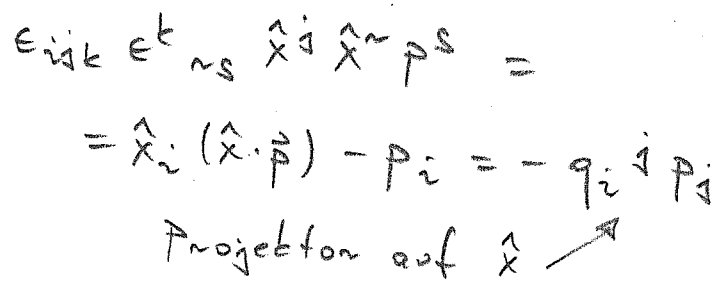 ϵ_{ijk} ϵ^k_{rs} x̂^j x̂^r p^s =
= x̂_i (x̂·p⃗) - p_i = - q_i^j p_j
Projektor auf x̂ ↗